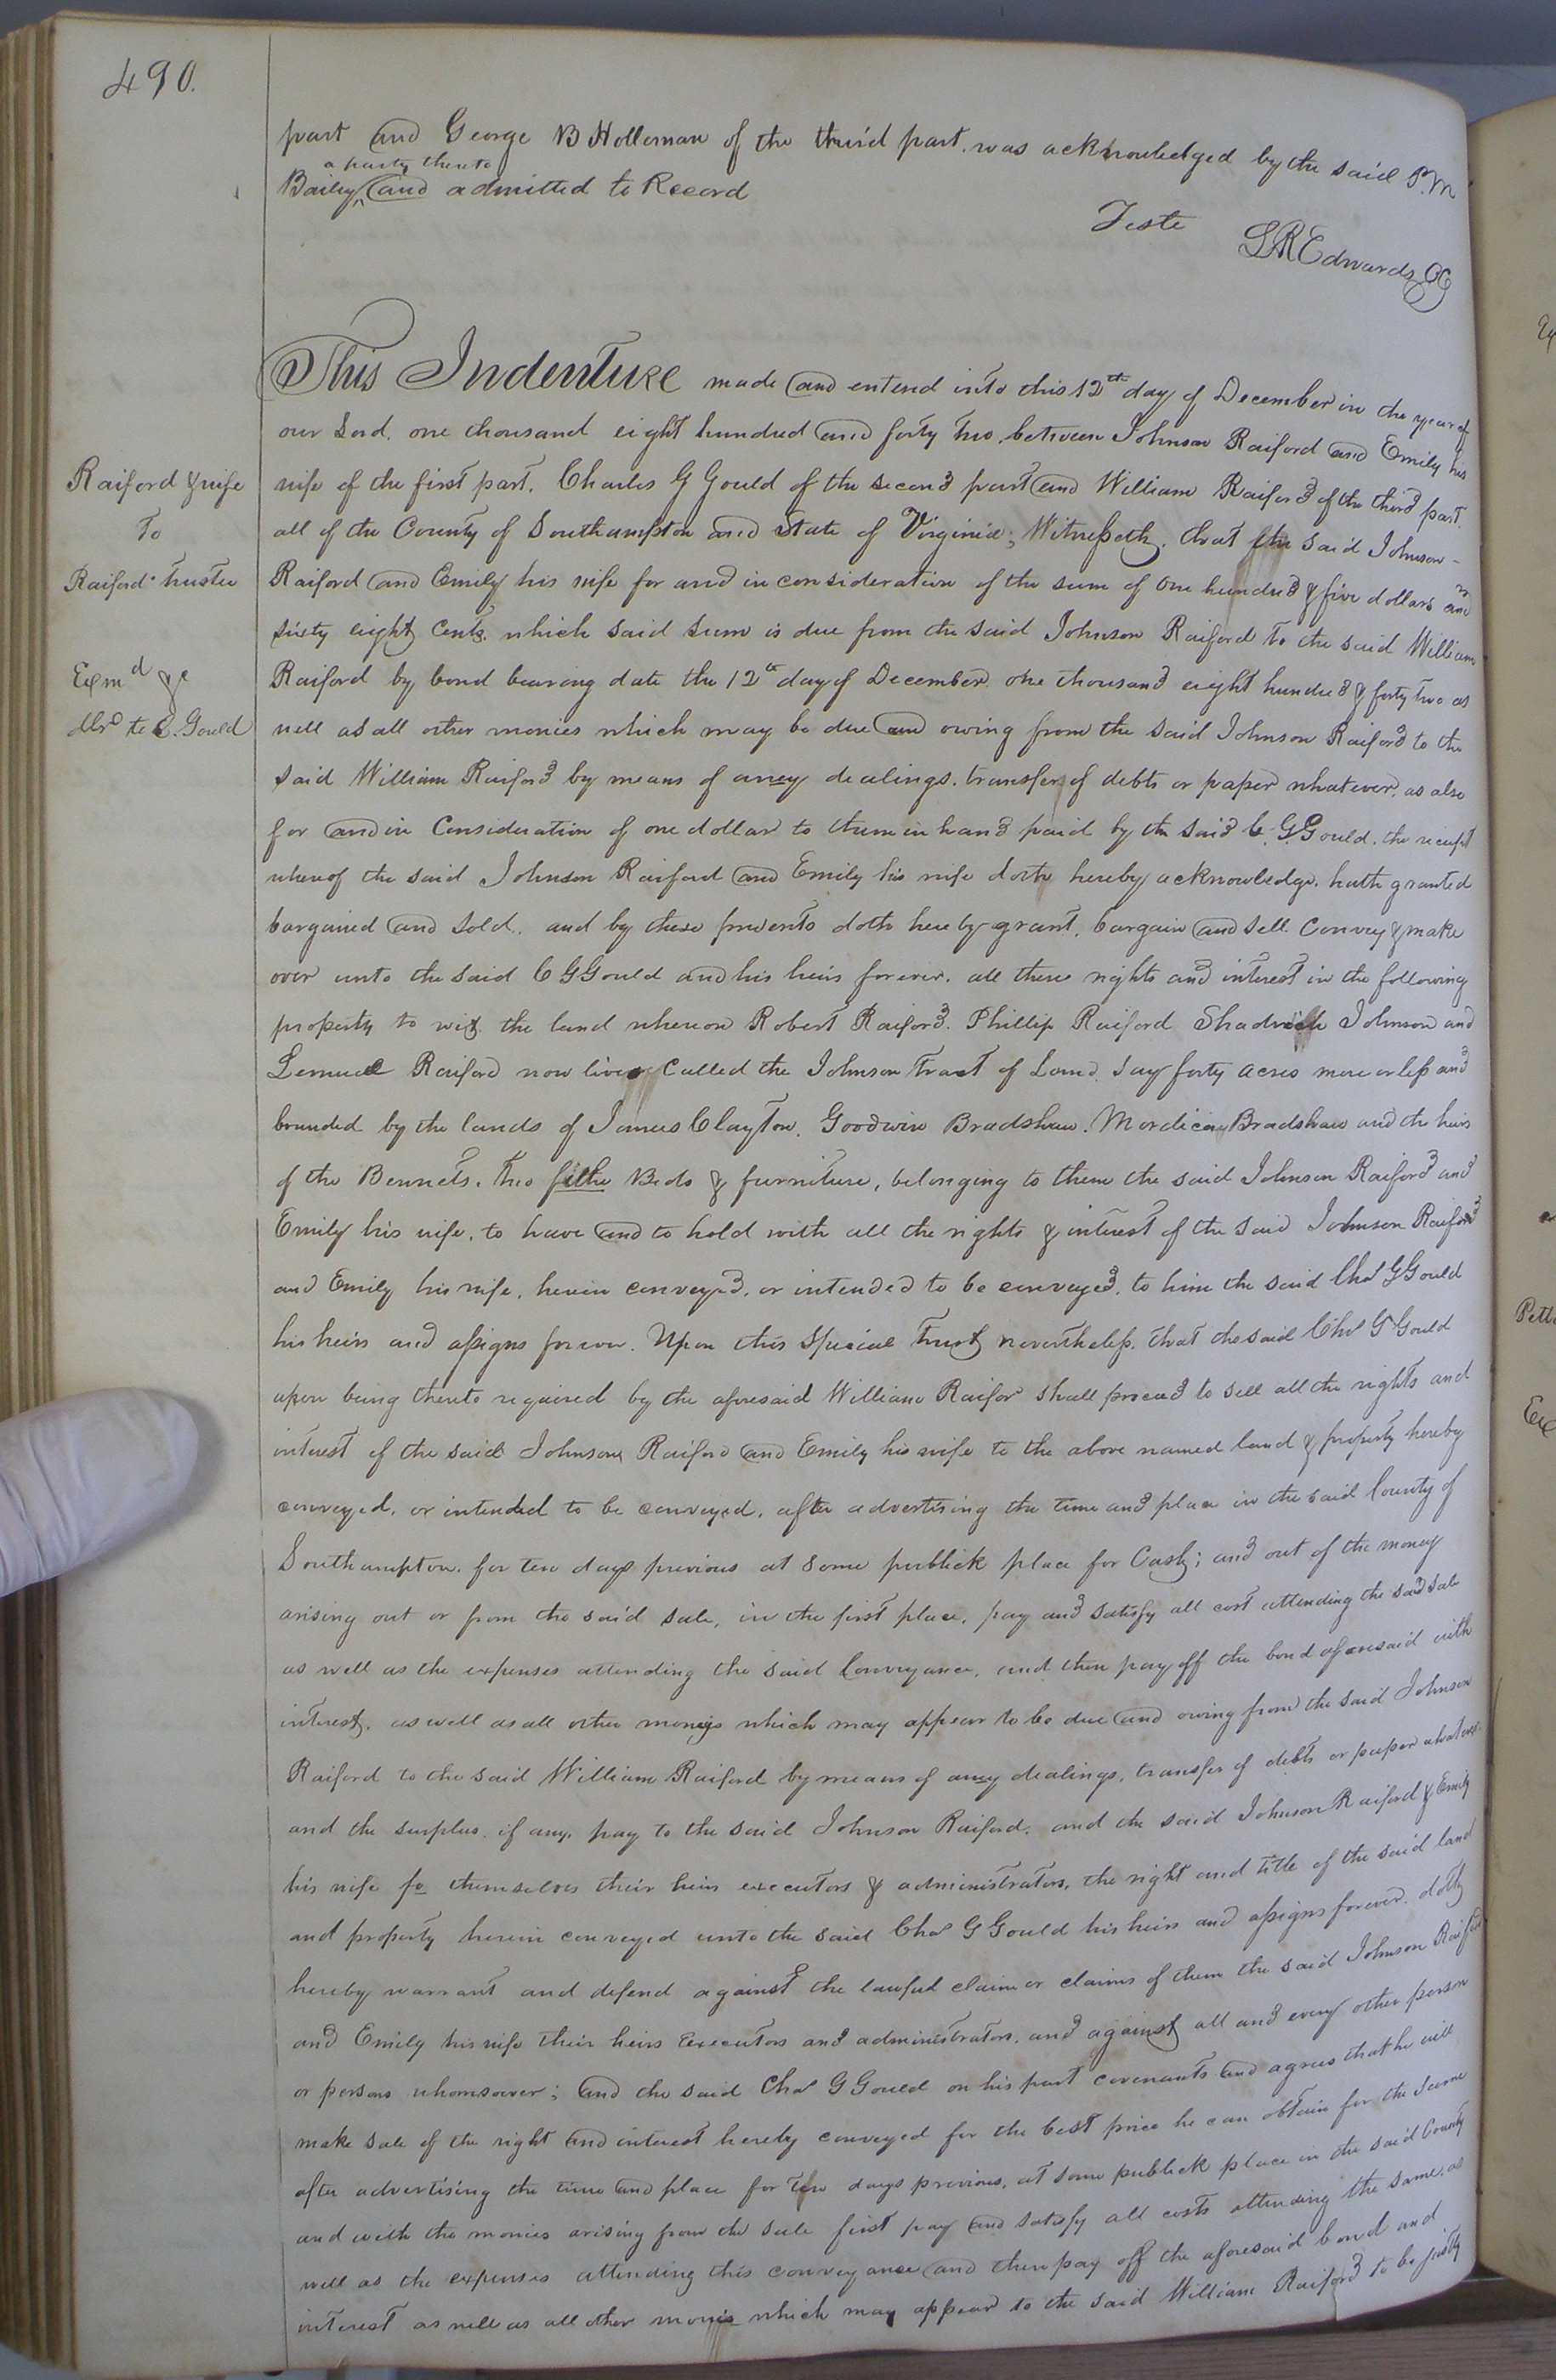 490.
part and George B Holleman of the third part. was acknowledged by the said P. M
a party thereto
Bailey and admitted to Record
Teste LREdwards CC
This Indenture made and enterd into this 12th day of December in the year of
our Lord. one thousand eight hundred and forty two. between Johnson Raiford and Emily his
Raiford & wife
wife of the first part. Charles G Gould of the second part and William Raiford of the third part.
To
all of the County of Southampton and State of Virginia; Witnesseth. that the said Johnson -
Raiford trustee
Raiford and Emily his wife for and in consideration of the sum of one hundred & five dollars and
sixty eight Cents. which said sum is due from the said Johnson Raiford to the said William
Exmd &c
Raiford by bond bearing date the 12th day of December. one thousand eight hundred & forty two as
dlrd to C. Gould
well as all other monies which may be due and owing from the said Johnson Raiford to the
said William Raiford by means of aney dealings. transfer of debts or paper whatever. as also
for and in Consideration of one dollar to them in hand paid by the said C. G. Gould. the receipt
whereof the said Johnson Raiford and Emily his wife doth hereby acknowledge. hath granted
bargained and sold. and by these presents doth hereby grant. bargain and sell. Convey & make
over unto the said C G Gould and his heirs forever. all there rights and interest in the following
property to wit. the land whereon Robert Raiford. Phillip Raiford Shadrick Johnson and
Lemuel Raiford now lives Called the Johnson tract of Land. say forty acres more or less and
bounded by the lands of James Clayton. Goodwin Bradshaw. Mordicai Bradshaw and the heirs
of the Bennets. two fethe Beds & furniture, belonging to them the said Johnson Raiford and
Emily his wife. to have and to hold with all the rights & interest of the said Johnson Raiford
and Emily his wife. herein conveyed. or intended to be conveyed. to him the said Chas G Gould
his heirs and assigns forever. Upon this Special Trust nevertheless. that the said Chas G Gould
upon being thereto required by the aforesaid William Raifor shall proceed to sell all the rights and
interest of the said Johnson Raiford and Emily his wife to the above named land & property hereby
conveyed. or intended to be conveyed. after advertising the time and place in the said County of
Southampton. for ten days previous at some publick place for Cash; and out of the money
arising out or from the said sale, in the first place, pay and satisfy all cost attending the said sale
as well as the expenses attending the said Conveyance, and then pay off the bond aforesaid with
interest. as well as all other moneys which may appear to be due and owing from the said Johnson
Raiford to the said William Raiford by means of aney dealings, transfer of debts or paper whatever
and the surplus. if any. pay to the said Johnson Raiford. and the said Johnson Raiford & Emily
his wife fo themselves their heirs executors & administrators, the right and title of the said land
and property herein conveyed unto the said Chas G Gould his heirs and assigns forever. doth
hereby warrant and defend against the lawful claim or claims of them the said Johnson Raiford
and Emily his wife their heirs Executors and administrators. and against all and every other person
or persons whomsoever; and the said Chas G Gould on his part covenants and agrees that he will
make sale of the right and interest hereby conveyed for the best price he can obtain for the same
after advertising the time and place for ten days previous, at some publick place in the said County
and with the monies arising from the sale first pay and satisfy all costs attending the same. as
well as the expenses attending this conveyance and then pay off the aforesaid bond and
interest as well as all other monies which may appear to the said William Raiford to be justly